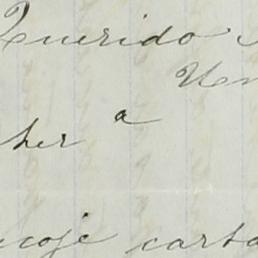 Querido
Un
her a
coje carta